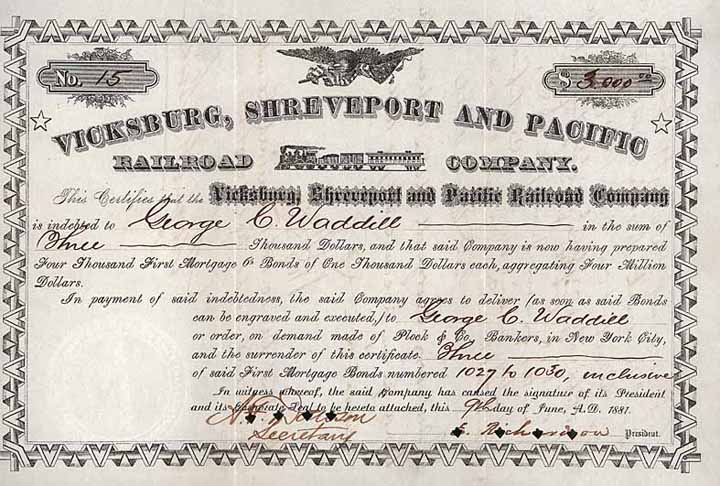 No. 15
$ 3,000 00
VICKSBURG, SHREVEPORT AND PACIFIC
RAILROAD COMPANY.
This Certifies that the Vicksburg, Shreveport and Pacific Railroad Company
is indebted to George C. Waddill in the sum of
Three Thousand Dollars, and that said Company is now having prepared
Four Thousand First Mortgage 6% Bonds of One Thousand Dollars each, aggregating Four Million
Dollars.
In payment of said indebtedness, the said Company agrees to deliver (as soon as said Bonds
can be engraved and executed,) to George C. Waddill
or order, on demand made of Plock & Co., Bankers, in New York City,
and the surrender of this certificate Three
of said First Mortgage Bonds numbered 1027 to 1030, inclusive
In witness whereof, the said Company has caused the signature of its President
and its Corporate Seal to be hereto attached, this 9th day of June, A.D. 1881.
Secretary
E. Richardson President.